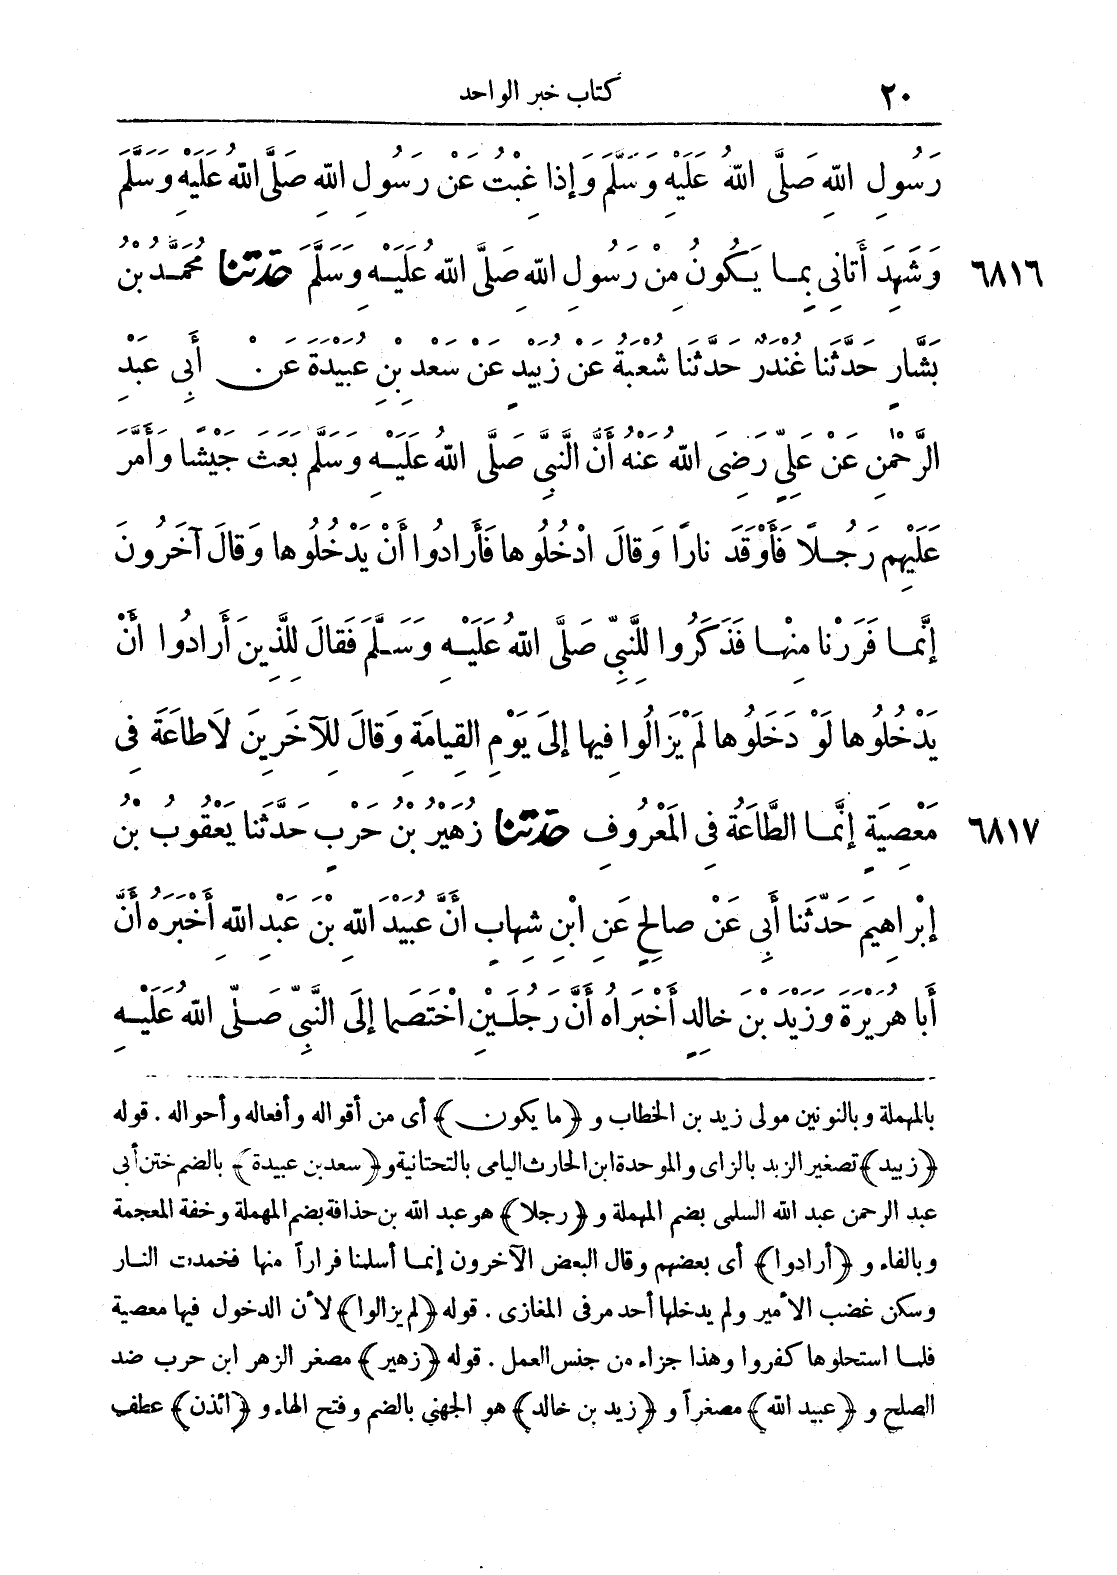 ٢٠ كتاب خبر الواحد
رَسُولِ اللهِ صَلَّى اللهُ عَلَيْهِ وَسَلَّمَ وَإِذا غِبْتُ عَنْ رَسُولِ اللهِ صَلَّى اللهُ عَلَيْهِ وَسَلَّمَ
٦٨١٦ وَشَهِدَ أَتانِي بِمـا يَكُونُ مِنْ رَسُولِ اللهِ صَلَّى اللهُ عَلَيْهِ وَسَلَّمَ حَدَّثَنا مُحَمَّدُ بْنُ
بَشَّارٍ حَدَّثَنا غُنْدَرٌ حَدَّثَنا شُعْبَةُ عَنْ زُبَيْدٍ عَنْ سَعْدِ بْنِ عُبَيْدَةَ عَنْ أَبِي عَبْدِ
الرَّحْمٰنِ عَنْ عَلِيٍّ رَضِيَ اللهُ عَنْهُ أَنَّ النَّبِيَّ صَلَّى اللهُ عَلَيْهِ وَسَلَّمَ بَعَثَ جَيْشًا وَأَمَّرَ
عَلَيْهِمْ رَجُلاً فَأَوْقَدَ نارًا وَقالَ ادْخُلُوها فَأَرادُوا أَنْ يَدْخُلُوها وَقالَ آخَرُونَ
إِنَّمـا فَرَرْنا مِنْهـا فَذَكَرُوا لِلنَّبِيِّ صَلَّى اللهُ عَلَيْهِ وَسَلَّمَ فَقالَ لِلَّذِينَ أَرادُوا أَنْ
يَدْخُلُوها لَوْ دَخَلُوها لَمْ يَزالُوا فِيها إِلَى يَوْمِ القِيامَةِ وَقالَ لِلْآخَرِينَ لَا طاعَةَ فِي
٦٨١٧ مَعْصِيَةٍ إِنَّمـا الطَّاعَةُ فِي المَعْرُوفِ حَدَّثَنا زُهَيْرُ بْنُ حَرْبٍ حَدَّثَنا يَعْقُوبُ بْنُ
إِبْراهِيمَ حَدَّثَنا أَبِي عَنْ صالِحٍ عَنِ ابْنِ شِهابٍ أَنَّ عُبَيْدَ اللهِ بْنَ عَبْدِ اللهِ أَخْبَرَهُ أَنَّ
أَبا هُرَيْرَةَ وَزَيْدَ بْنَ خالِدٍ أَخْبَراهُ أَنَّ رَجُلَيْنِ اخْتَصَما إِلَى النَّبِيِّ صَلَّى اللهُ عَلَيْهِ
بالمهملة وبالنونين مولى زيد بن الخطاب و ﴿ما يكون﴾ أى من أقواله وأفعاله وأحواله. قوله
﴿زبيد﴾ تصغير الزبد بالزاى والموحدة ابن الحارث اليامى بالتحتانية و﴿سعد بن عبيدة﴾ بالضم ختن أبى
عبد الرحمن عبد الله السلمى بضم المهملة و ﴿رجلا﴾ هو عبد الله بن حذافة بضم المهملة وخفة المعجمة
وبالفاء و ﴿أرادوا﴾ أى بعضهم وقال البعض الآخرون إنمـا أسلمنا فراراً منها فخمدت النـار
وسكن غضب الأمير ولم يدخلها أحد مر فى المغازى. قوله ﴿لم يزالوا﴾ لأن الدخول فيها معصية
فلمـا استحلوها كفروا وهذا جزاء من جنس العمل. قوله ﴿زهير﴾ مصغر الزهر ابن حرب ضد
الصلح و ﴿عبيد الله﴾ مصغراً و ﴿زيد بن خالد﴾ هو الجهني بالضم وفتح الهاء و ﴿ائذن﴾ عطف